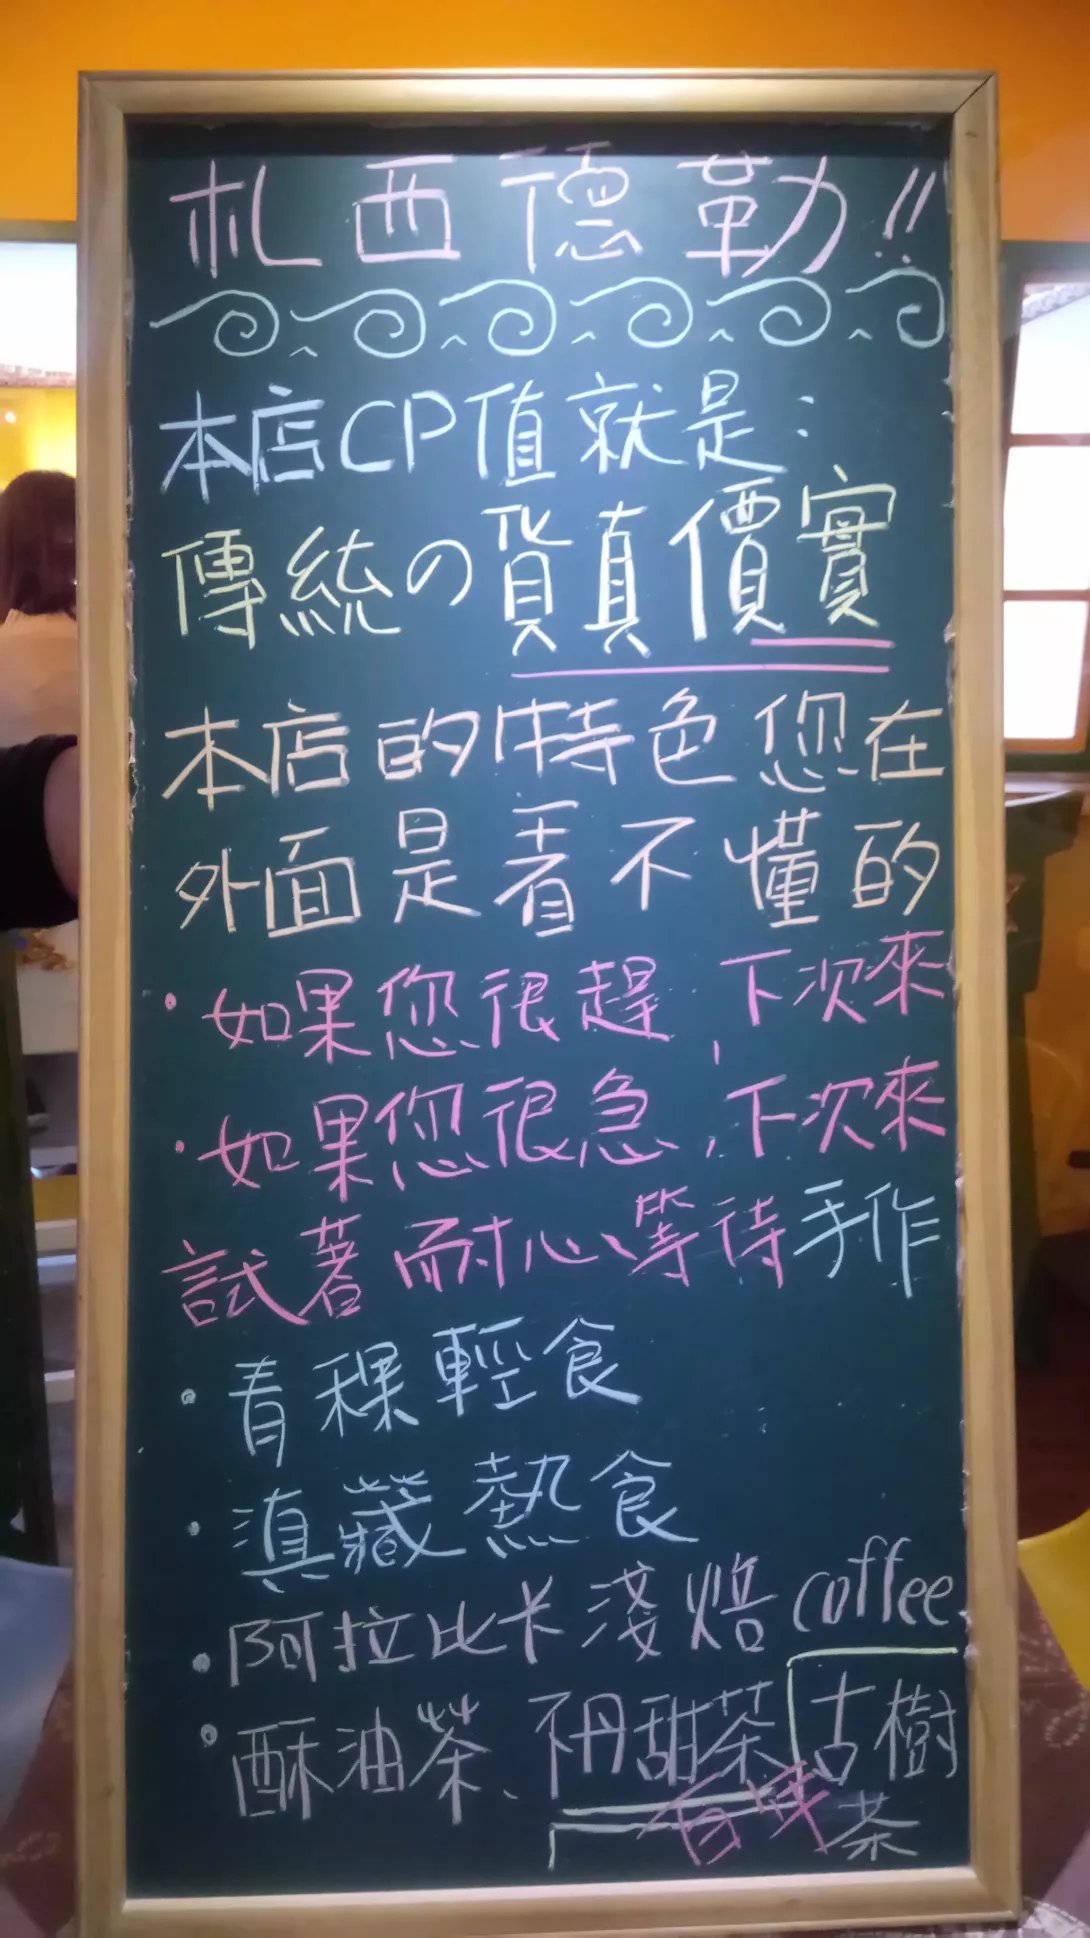 札西德勒!!
本店CP值就是:
傳統の貨真價實
本店的特色您在
外面是看不懂的
·如果您很趕,下次來
·如果您很急,下次來
試著耐心等待手作
·青稞輕食
·滇藏熱食
·阿拉比卡淺焙coffee
·酥油茶、不丹甜茶 古樹
茶